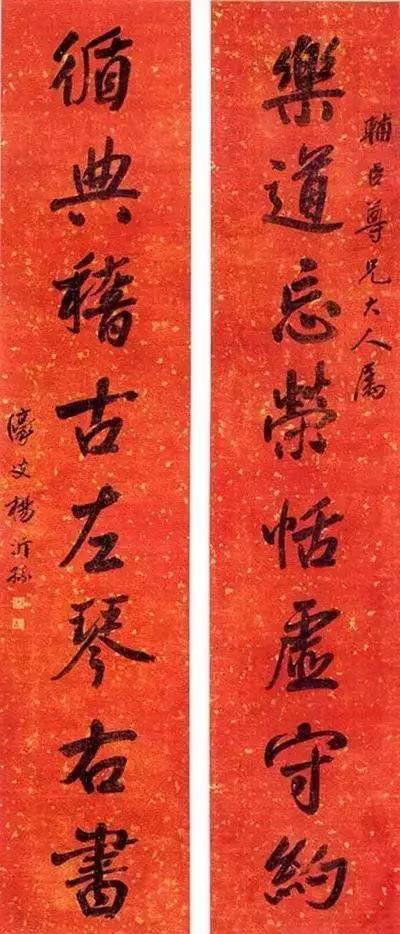 輔臣尊兄大人屬
樂道忘榮恬虛守約
循典稽古左琴右書
濠叟楊沂孫